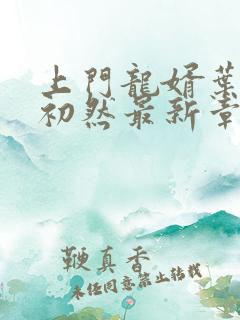 上門龍婿葉
初然最新章
鞭真香
未任同意禁止转载